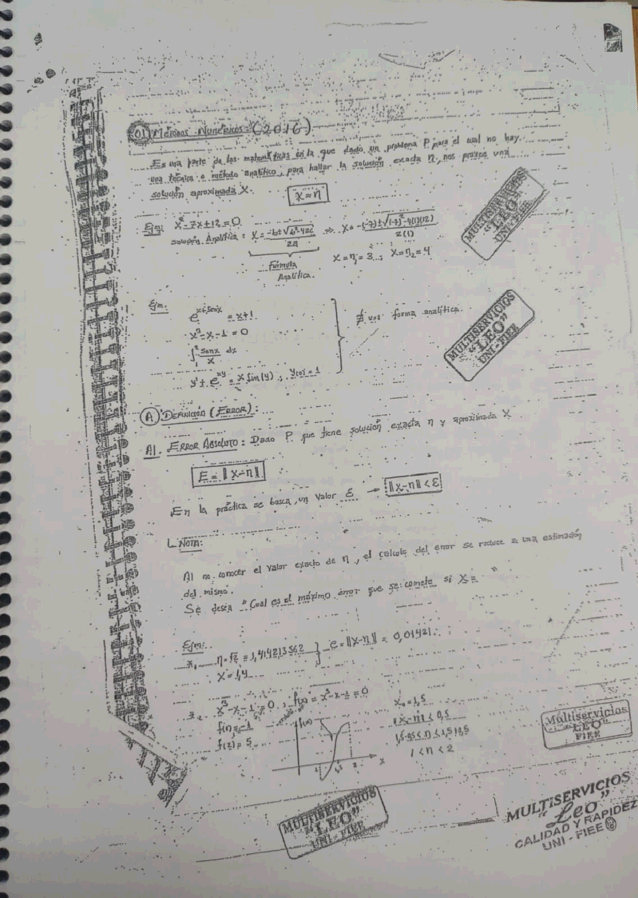 01) Métodos Numéricos: (2016)
Es una parte de las matemáticas en la que dado un problema P para el cual no hay
una técnica o método analítico, para hallar la solución exacta η, nos provee una
solución aproximada X.
X ≈ η
Ejm: X² - 7X + 12 = 0
Solución Analítica : X = (-b ± √(b² - 4ac)) / 2a ⇒ X = (-(-7) ± √((-7)² - 4(1)(12))) / 2(1)
Fórmula
Analítica.
X = η₁ = 3 ; X = η₂ = 4
Ejm.
= x+1
x³ - x - 1 = 0
∫ senx/x dx
y' + e^xy = x sin(y) ; y(0) = 1
∄ una forma analítica.
A) Definición (Error):
A1. Error Absoluto: Dado P que tiene solución exacta η y aproximada X
E = ‖X-η‖
En la práctica se busca un valor ε → ‖X-η‖ < ε
Nota:
Al no conocer el valor exacto de η, el cálculo del error se reduce a una estimación
del mismo.
Se desea "Cual es el máximo error que se comete si X ="
Ejm:
1. η = √2 = 1,414213562
X = 1,4
e = ‖X-η‖ = 0,01421
2. x³ - x - 1 = 0 ; f(x) = x³ - x - 1 = 0
f(1) = -1
f(2) = 5
f(x)
1
1,5
2
x
X = 1,5
|X-η| < 0,5
1 < η < 2
MULTISERVICIOS
"LEO"
UNI - FIEE
MULTISERVICIOS
"LEO"
UNI - FIEE
Multiservicios
"LEO"
FIEE
MULTISERVICIOS
"LEO"
UNI - FIEE
MULTISERVICIOS
"Leo"
CALIDAD Y RAPIDEZ
UNI - FIEE